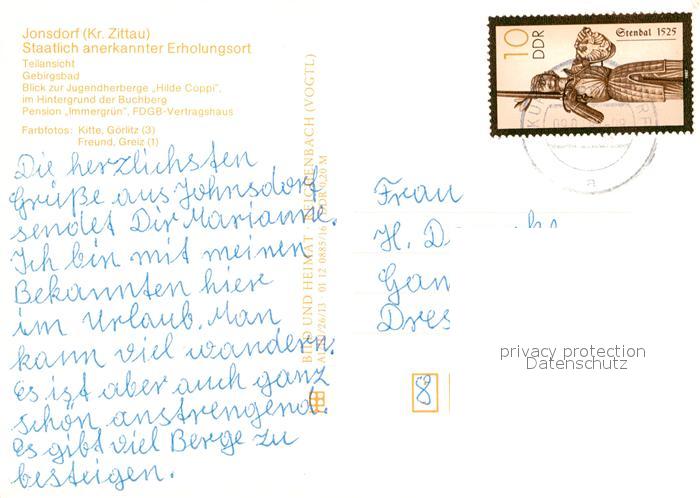 Jonsdorf (Kr. Zittau)
Staatlich anerkannter Erholungsort
Teilansicht
Gebirgsbad
Blick zur Jugendherberge „Hilde Coppi",
im Hintergrund der Buchberg
Pension „Immergrün", FDGB-Vertragshaus
Farbfotos: Kitte, Görlitz (3)
Freund, Greiz (1)
Die herzlichsten
Grüße aus Johnsdorf
sendet Dir Marianne.
Ich bin mit meinen
Bekannten hier
im Urlaub. Man
kann viel wandern.
Es ist aber auch ganz
schön anstrengend.
Es gibt viel Berge zu
besteigen.
BILD UND HEIMAT (VOGTL)
01 12 0885/16
10
DDR
Stendal 1525
a
Frau
H. D
Gan
Dres
8
privacy protection
Datenschutz